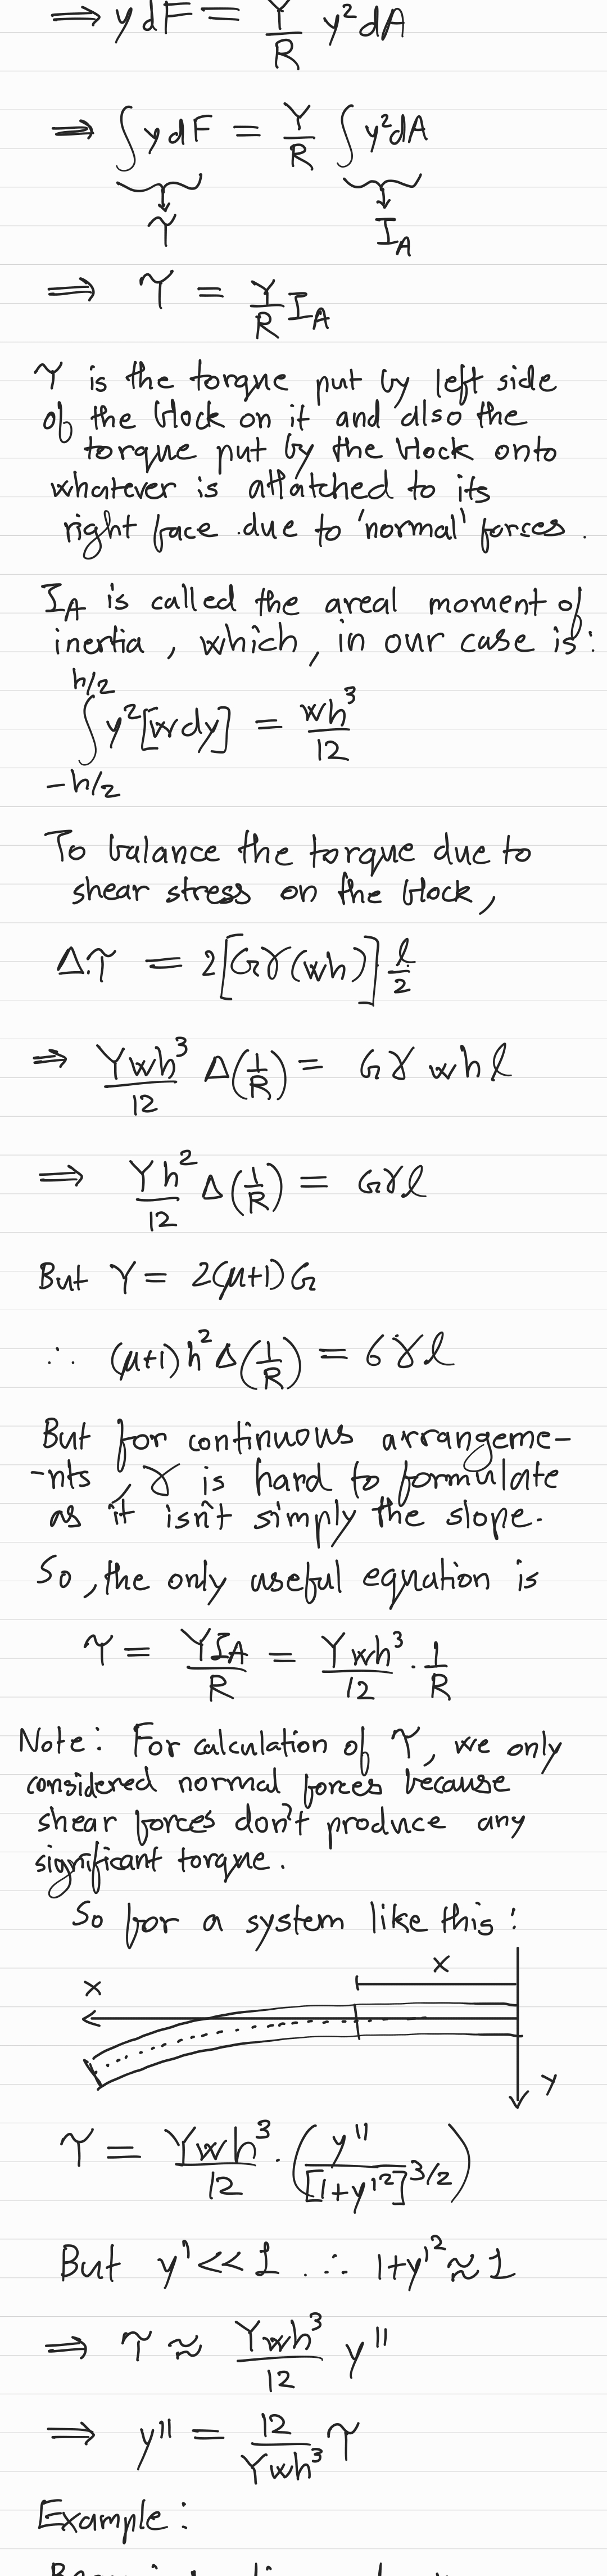 ⇒ y dF = Y/R y²dA
⇒ ∫ y dF = Y/R ∫ y²dA
τ I_A
⇒ τ = Y/R I_A
τ is the torque put by left side
of the block on it and also the
torque put by the block onto
whatever is attatched to its
right face due to 'normal' forces.
I_A is called the areal moment of
inertia, which, in our case is:
∫_{-h/2}^{h/2} y²[wdy] = wh³/12
To balance the torque due to
shear stress on the block,
Δτ = 2[Gγ(wh)] l/2
⇒ Ywh³/12 Δ(1/R) = Gγ whl
⇒ Yh²/12 Δ(1/R) = Gγl
But Y = 2(μ+1)G
∴ (μ+1)h² Δ(1/R) = 6γl
But for continuous arrangeme-
-nts, γ is hard to formulate
as it isn't simply the slope.
So, the only useful equation is
τ = YI_A/R = Ywh³/12 · 1/R
Note: For calculation of τ, we only
considered normal forces because
shear forces don't produce any
significant torque.
So for a system like this:
x
x
y
τ = Ywh³/12 · (y''/[1+y'²]^3/2)
But y' << 1 ∴ 1+y'² ≈ 1
⇒ τ ≈ Ywh³/12 y''
⇒ y'' = 12/Ywh³ τ
Example: